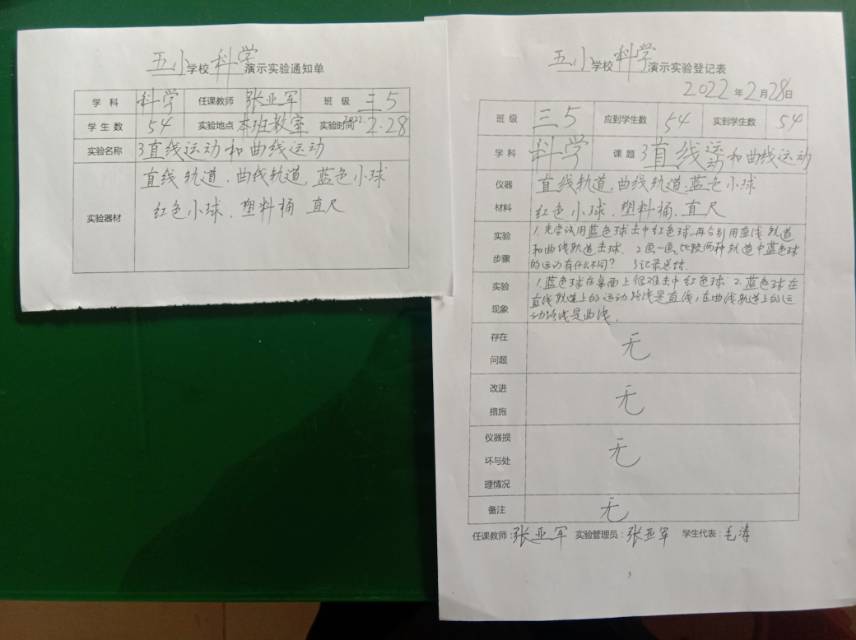 五小学校科学演示实验通知单
学科 科学 任课教师 张亚军 班级 三5
学生数 54 实验地点 本班教室 实验时间 2022.2.28
实验名称 3直线运动和曲线运动
实验器材 直线轨道、曲线轨道、蓝色小球
红色小球、塑料桶、直尺
五小学校科学演示实验登记表
2022年2月28日
班级 三5 应到学生数 54 实到学生数 54
学科 科学 课题 3直线运动和曲线运动
仪器 直线轨道、曲线轨道、蓝色小球
材料 红色小球、塑料桶、直尺
实验 1.先尝试用蓝色球击中红色球,再分别用直线轨道
步骤 和曲线轨道击球. 2.画一画、比较两种轨道中蓝色球
的运动有什么不同? 3.记录总结.
实验 1.蓝色球在桌面上很难击中红色球. 2.蓝色球在
现象 直线轨道上的运动路线是直线,在曲线轨道上的运
动路线是曲线.
存在
问题 无
改进
措施 无
仪器损
坏与处 无
理情况
备注 无
任课教师:张亚军 实验管理员:张亚军 学生代表:毛涛